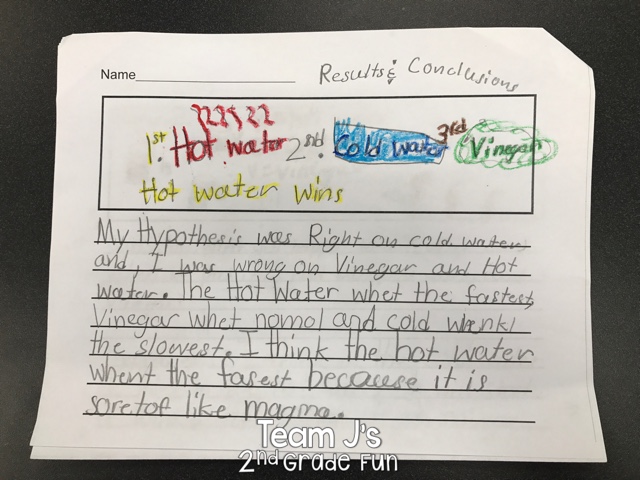 Name
Results & Conclusions
1st. Hot water 2nd. Cold water 3rd Vinegar
Hot water wins
My Hypothesis was Right on cold water
and, I was wrong on Vinegar and Hot
water. The Hot Water whet the fastest,
Vinegar whet nomol and cold whenkl
the slowest. I think the hot water
whent the fasest because it is
soretof like magma.
Team J's
2nd Grade Fun